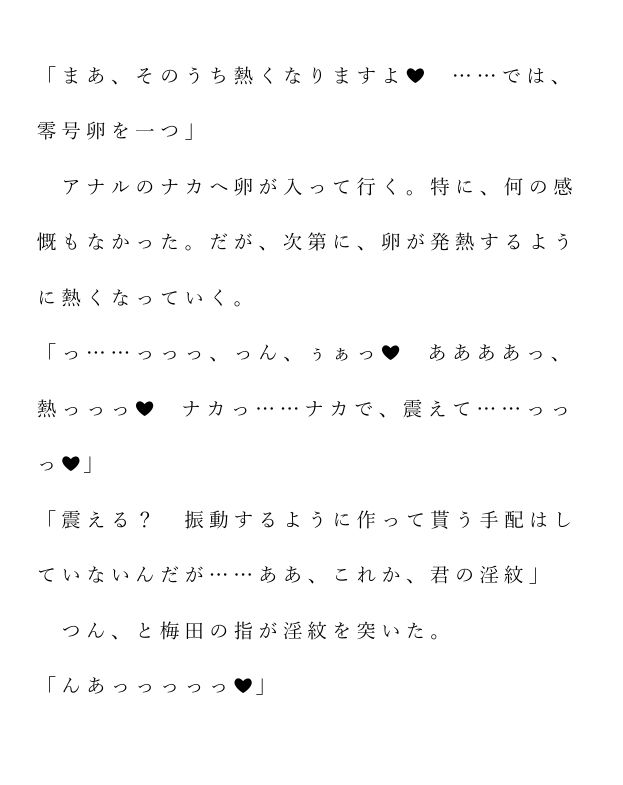 「まあ、そのうち熱くなりますよ♥　……では、
零号卵を一つ」
　アナルのナカへ卵が入って行く。特に、何の感
慨もなかった。だが、次第に、卵が発熱するよう
に熱くなっていく。
「っ……っっっ、っん、ぅぁっ♥　ああああっ、
熱っっっ♥　ナカっ……ナカで、震えて……っっ
っ♥」
「震える？　振動するように作って貰う手配はし
ていないんだが……ああ、これか、君の淫紋」
　つん、と梅田の指が淫紋を突いた。
「んあっっっっっ♥」